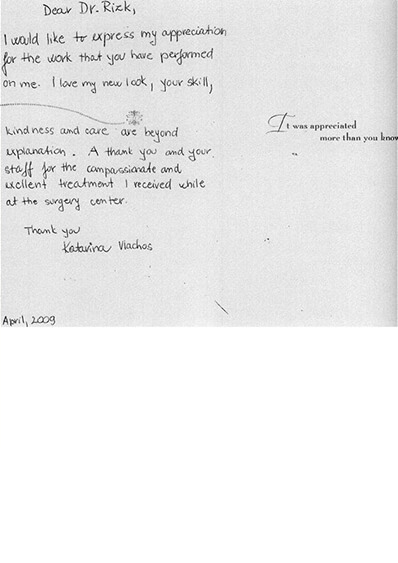 Dear Dr. Rizk,
I would like to express my appreciation
for the work that you have performed
on me. I love my new look, your skill,
kindness and care are beyond
explanation. A thank you and your
staff for the compassionate and
exellent treatment I received while
at the surgery center.
Thank you
Katarina Vlachos
April, 2009
It was appreciated
more than you know